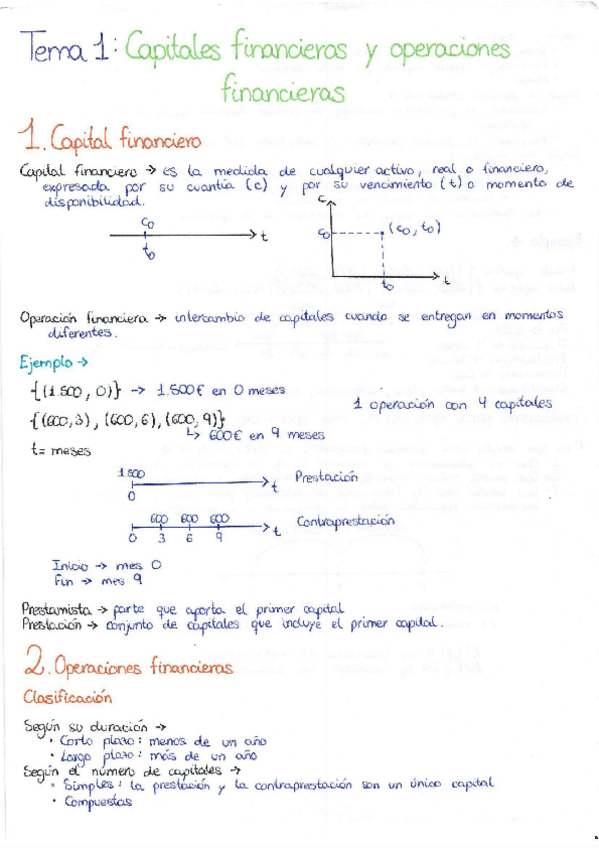 Tema 1: Capitales financieros y operaciones
financieras
1. Capital financiero
Capital financiero → es la medida de cualquier activo, real o financiero,
expresada por su cuantía (c) y por su vencimiento (t) o momento de
disponibilidad.
C₀
t₀
t
C
C₀
(C₀, t₀)
t₀
t
Operación financiera → intercambio de capitales cuando se entregan en momentos
diferentes.
Ejemplo →
{(1.800, 0)} → 1.800€ en 0 meses
{(600, 3), (600, 6), (600, 9)}
↳ 600€ en 9 meses
1 operación con 4 capitales
t = meses
1.800
0
t
Prestación
600 600 600
0 3 6 9
t
Contraprestación
Inicio → mes 0
Fin → mes 9
Prestamista → parte que aporta el primer capital
Prestación → conjunto de capitales que incluye el primer capital.
2. Operaciones financieras
Clasificación
Según su duración →
· Corto plazo: menos de un año
· Largo plazo: más de un año
Según el número de capitales →
· Simples: la prestación y la contraprestación son un único capital
· Compuestas